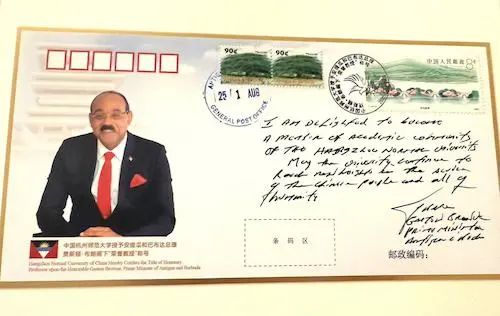 90c
90c
中国人民邮政
8分
25 1 AUG
GENERAL POST OFFICE
I AM DELIGHTED TO BECOME
A MEMBER OF ACADEMIC COMMUNITY
OF THE HANGZHOU NORMAL UNIVERSITY
MAY THE UNIVERSITY CONTINUE TO
Reach new heights for the service
of the Chinese people and all of
humanity
Gaston Browne
prime minister
中国杭州师范大学授予安提瓜和巴布达总理
加斯顿·布朗阁下“荣誉教授”称号
Hangzhou Normal University of China Hereby Confers the Title of Honorary
Professor upon the Honorable Gaston Browne, Prime Minister of Antigua and Barbuda
条 码 区
邮政编码: